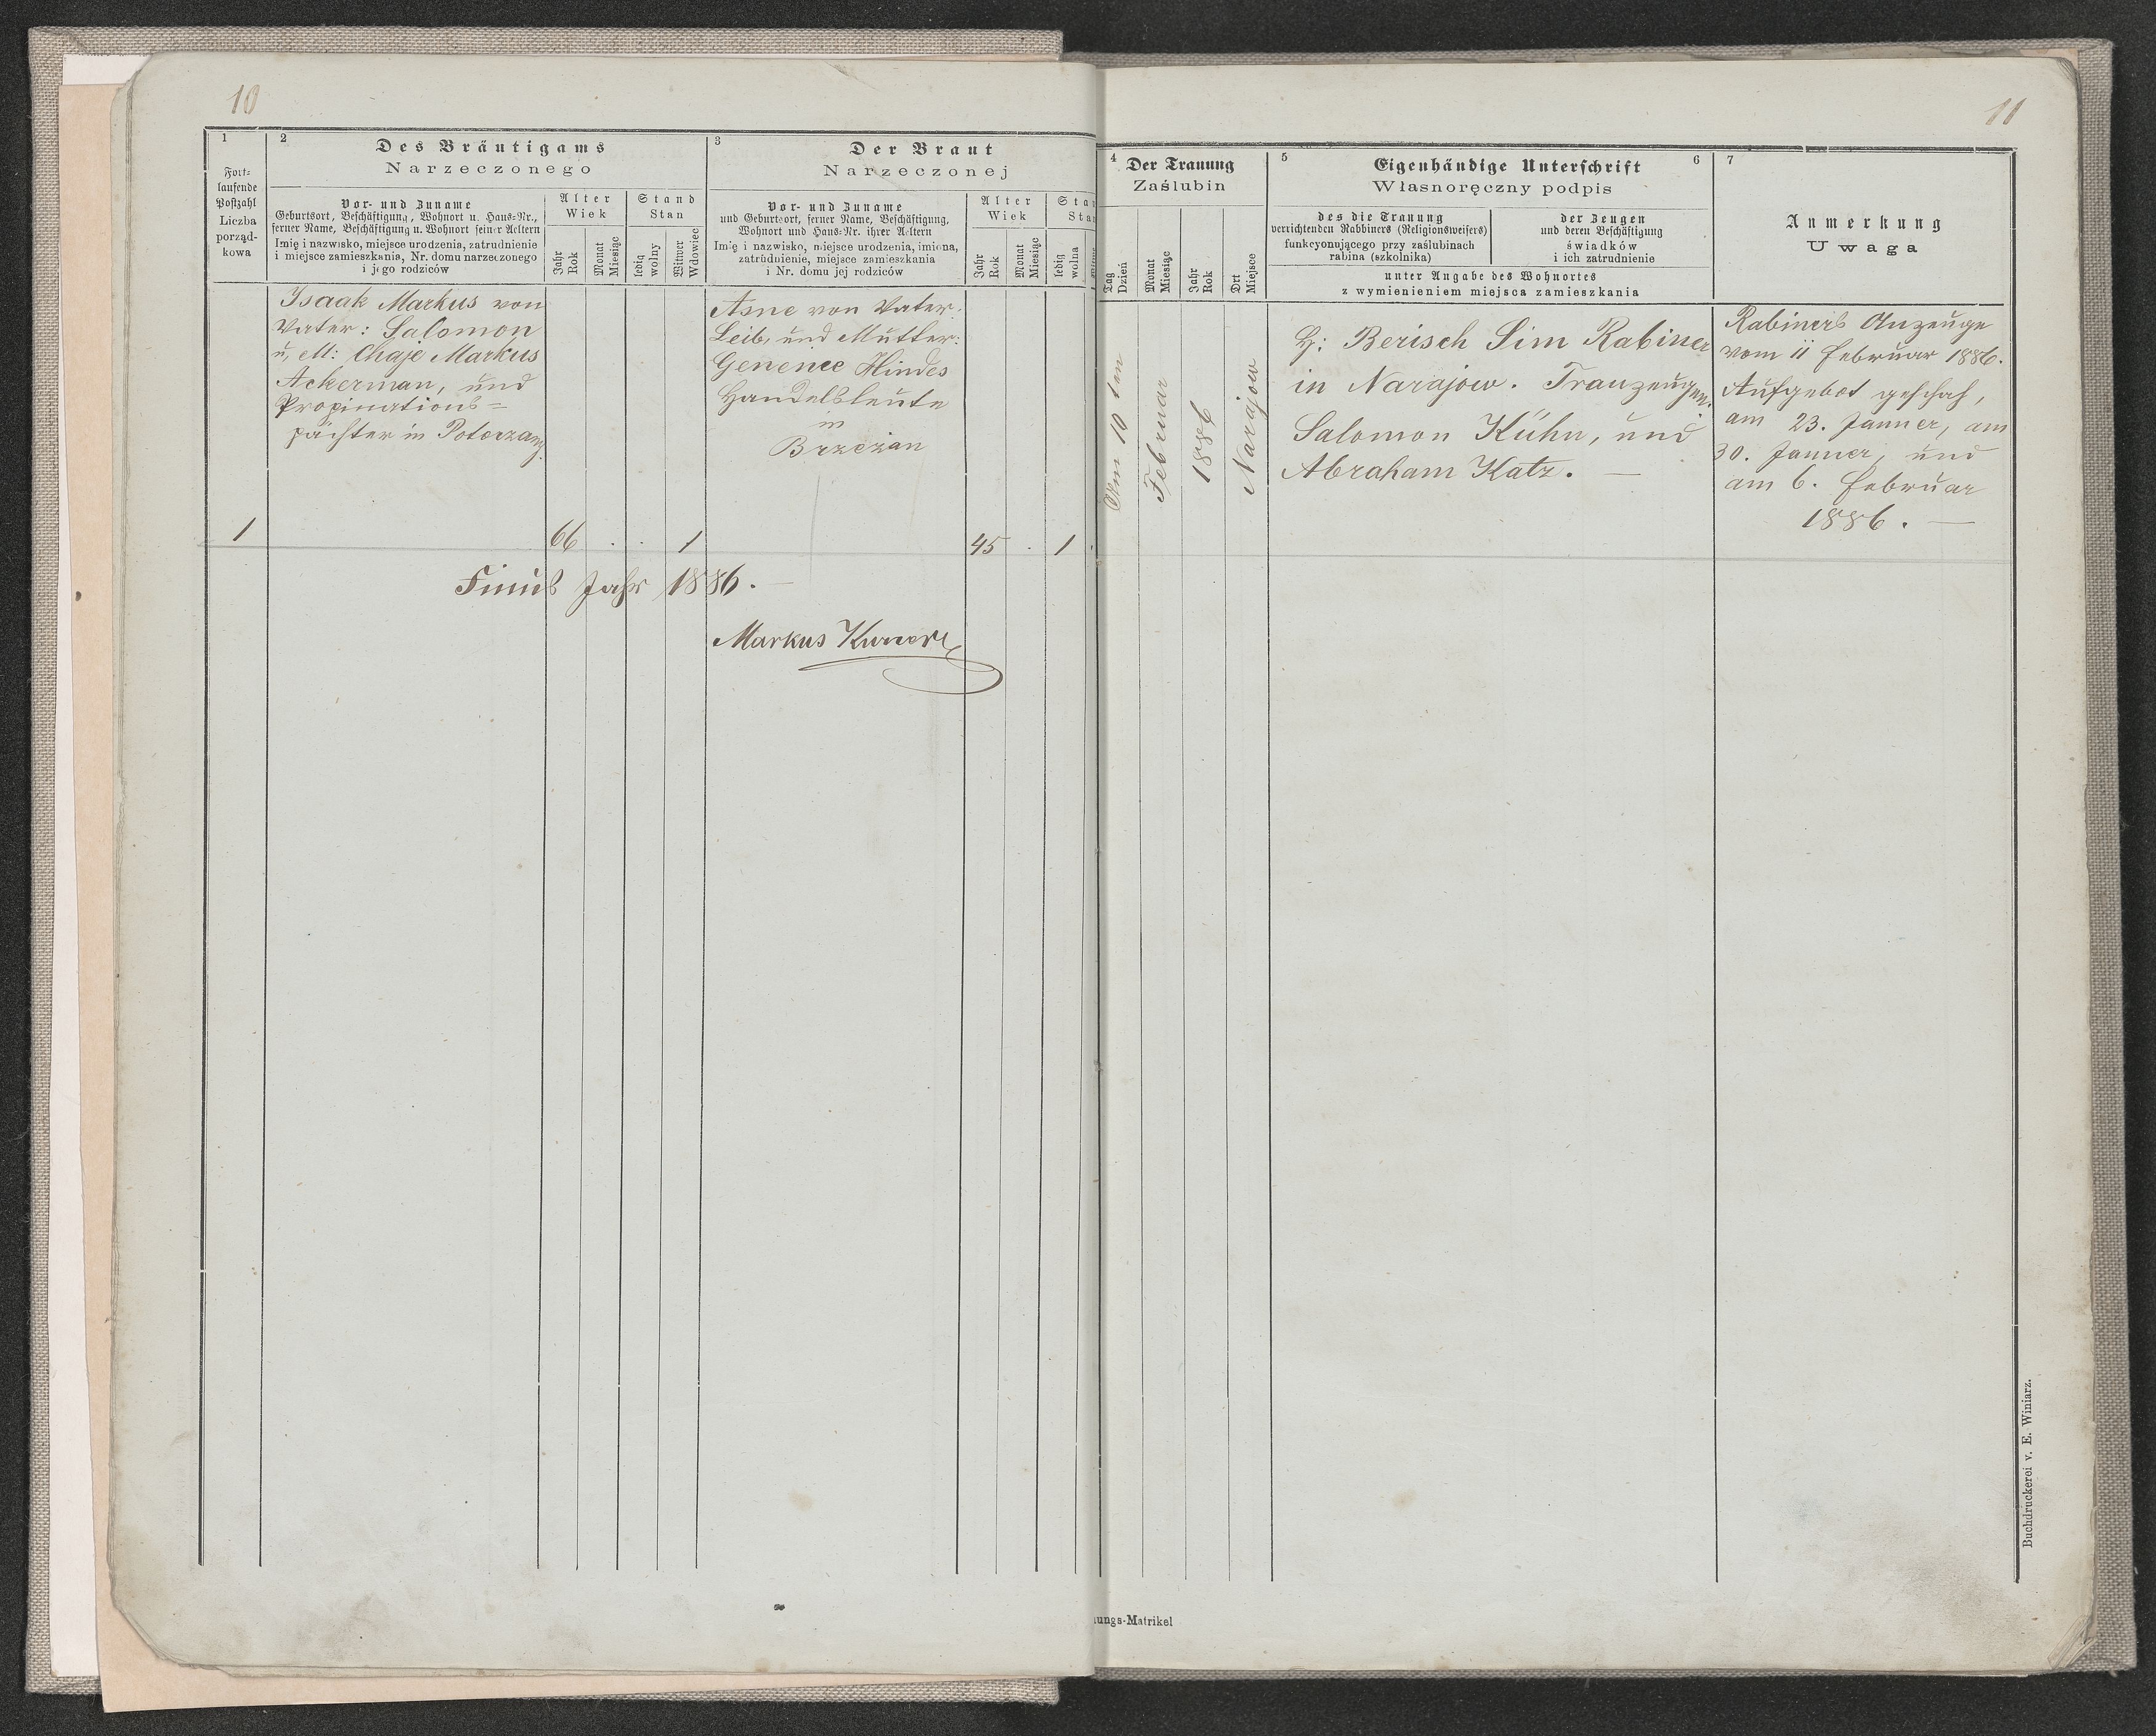 10
1
Fort=
laufende
Postzahl
Liczba
porząd-
kowa
2
Des Bräutigams
Narzeczonego
Vor- und Zuname
Geburtsort, Beschäftigung, Wohnort u. Haus=Nr.,
ferner Name, Beschäftigung u. Wohnort seiner Aeltern
Imię i nazwisko, miejsce urodzenia, zatrudnienie
i miejsce zamieszkania, Nr. domu narzeczonego
i jego rodziców
Alter
Wiek
Jahr
Rok
Monat
Miesiąc
Stand
Stan
ledig
wolny
Witwer
Wdowiec
3
Der Braut
Narzeczonej
Vor- und Zuname
und Geburtsort, ferner Name, Beschäftigung,
Wohnort und Haus=Nr. ihrer Aeltern
Imię i nazwisko, miejsce urodzenia, imiona,
zatrudnienie, miejsce zamieszkania
i Nr. domu jej rodziców
Alter
Wiek
Jahr
Rok
Monat
Miesiąc
Stan
Sta
ledig
wolna
Isaak Markus von
Vater: Salomon
u, M: Chaje Markus
Ackerman, und
Propinations=
pächter in
1
66 . . 1
Asne von Vater:
Leib, und Mutter:
Genence Hindes
Handelsleute
in
Brzeżan
45 . 1 .
Finis Jahr 1886. —
Markus
11
4
Der Trauung
Zaślubin
Tag
Dzień
Monat
Miesiąc
Jahr
Rok
Ort
Miejsce
5
Eigenhändige Unterschrift
6
Własnoręczny podpis
des die Trauung
verrichtenden Rabbiners (Religionsweisers)
funkcyonującego przy zaślubinach
rabina (szkolnika)
der Zeugen
und deren Beschäftigung
świadków
i ich zatrudnienie
unter Angabe des Wohnortes
z wymienieniem miejsca zamieszkania
7
Anmerkung
Uwaga
Am 10ten
Februar
1886
Narajow
H: Berisch Sim Rabiner
in Narajow. Trauzeugen:
Salomon Kühn, und
Abraham Katz. —
Rabiners Anzeuge
vom 11 Februar 1886.
Aufgebot geschah,
am 23. Janner, am
30. Janner, und
am 6. Februar
1886. —
Buchdruckerei v. E. Winiarz.
ungs-Matrikel